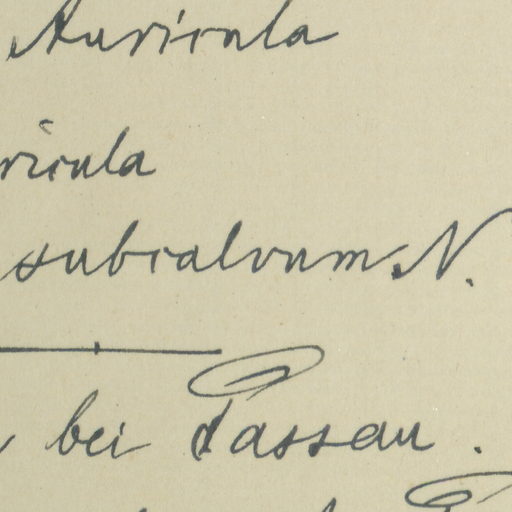 Auricula
ricula
subcalvum N.
bei Passau.